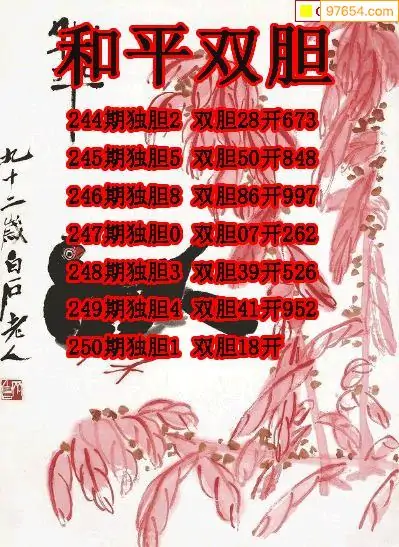 97654.com
和平双胆
244期独胆2 双胆28开673
245期独胆5 双胆50开848
246期独胆8 双胆86开997
247期独胆0 双胆07开262
248期独胆3 双胆39开526
249期独胆4 双胆41开952
250期独胆1 双胆18开
九十二岁白石老人